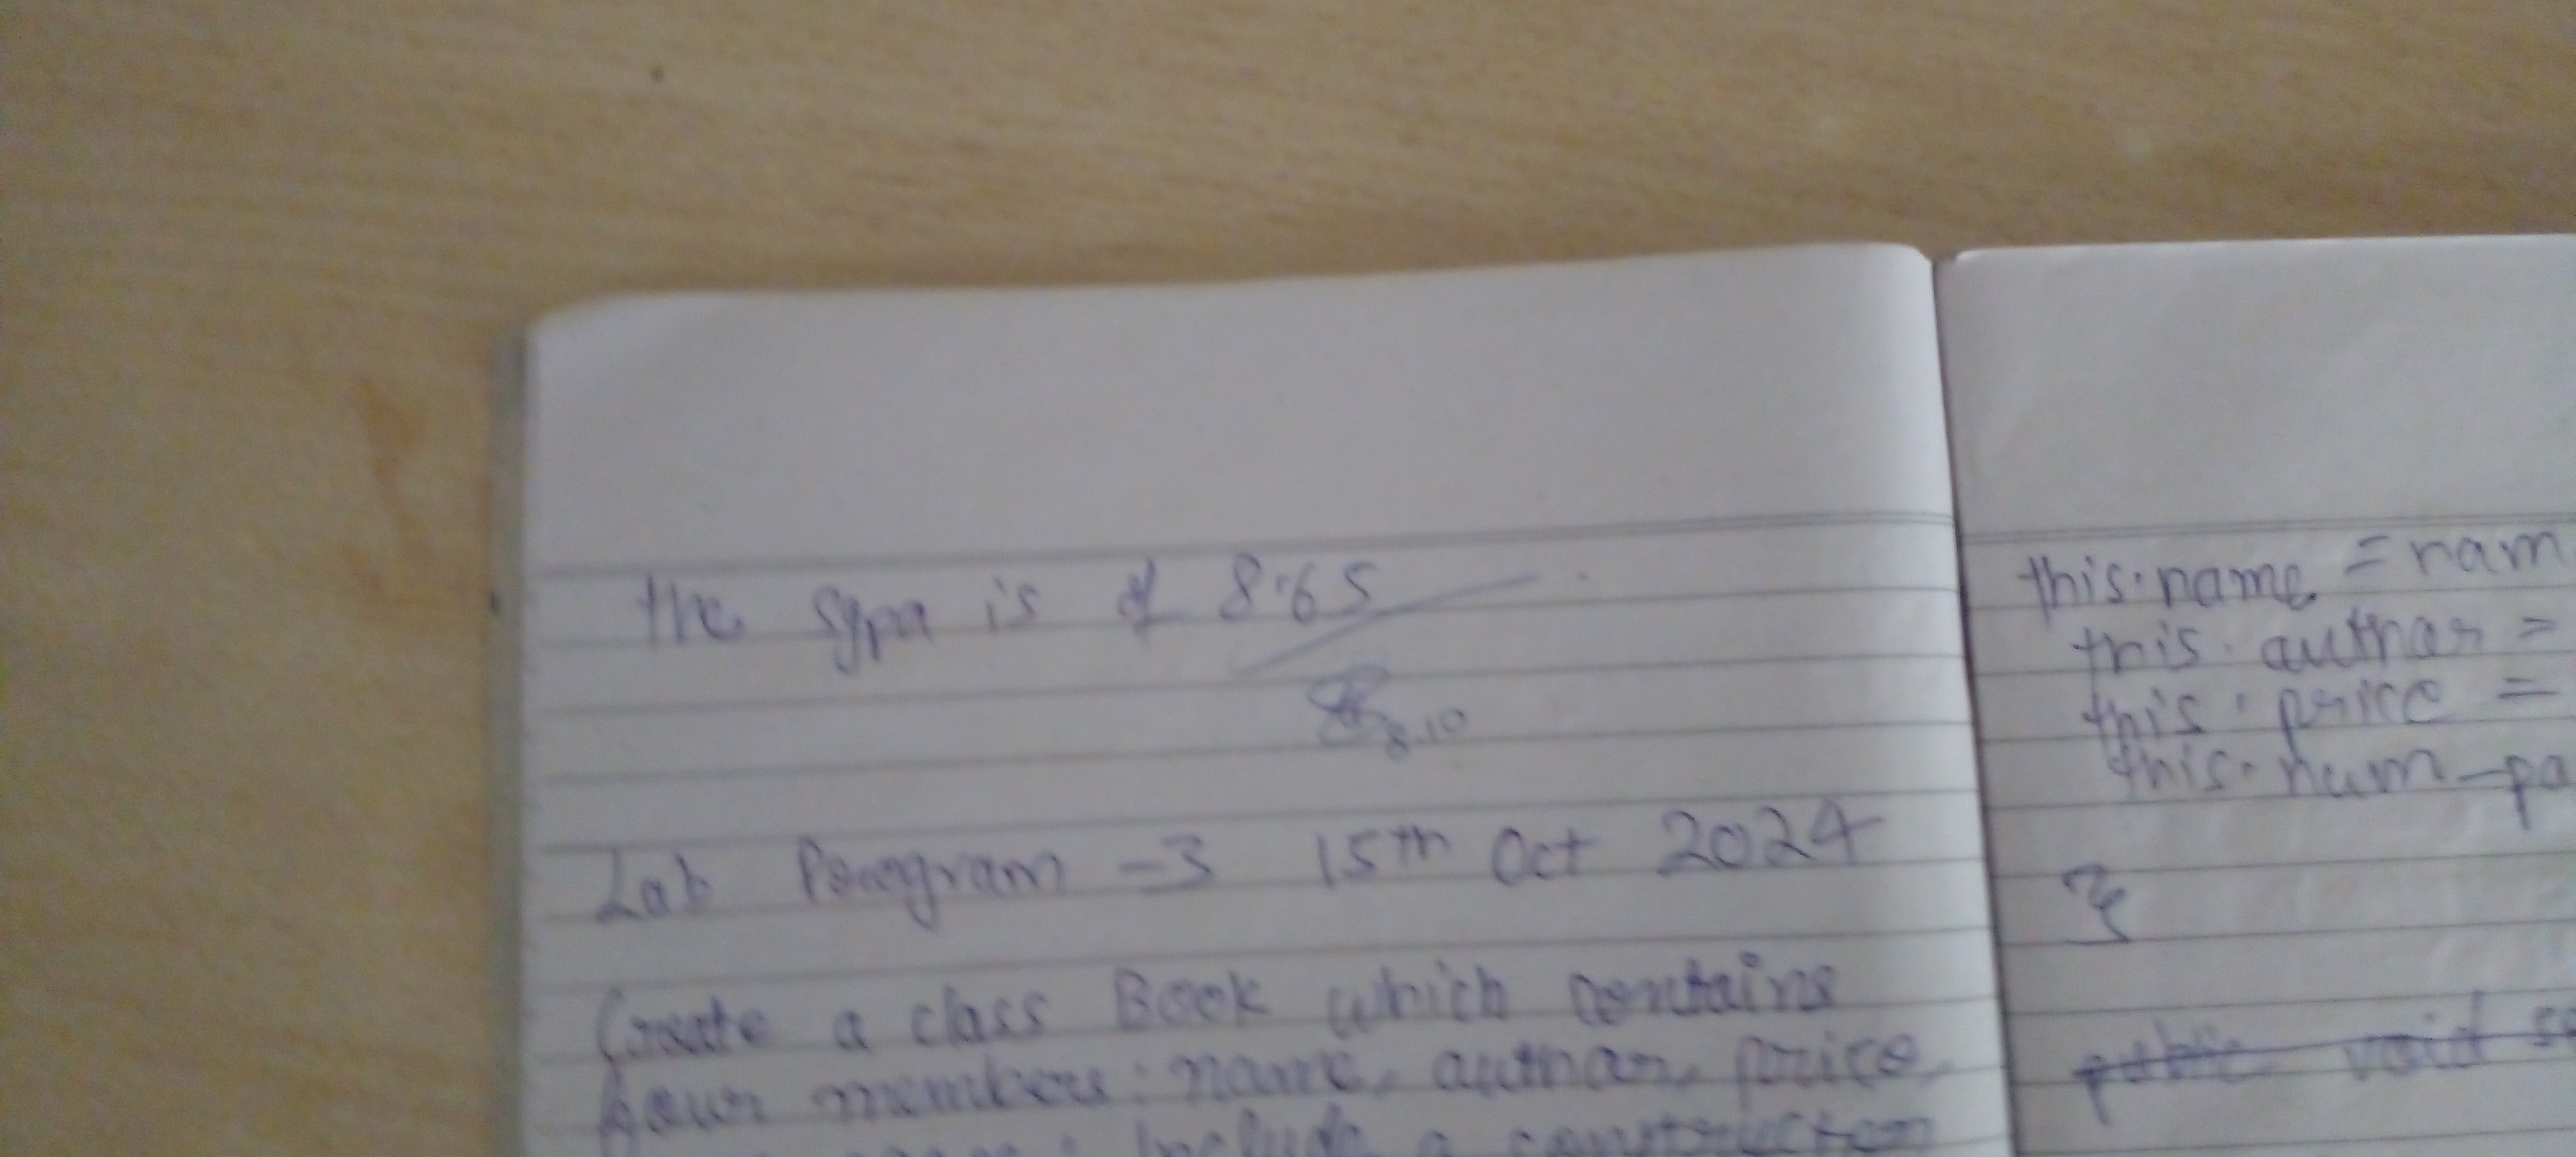 the sgpa is of 8.65
8.10
Lab Program - 3 15th Oct 2024
Create a class Book which contains
four members: name, author, price,
include a constructor
this.name = nam
this.author =
this.price =
this.num-pa
}
public void se